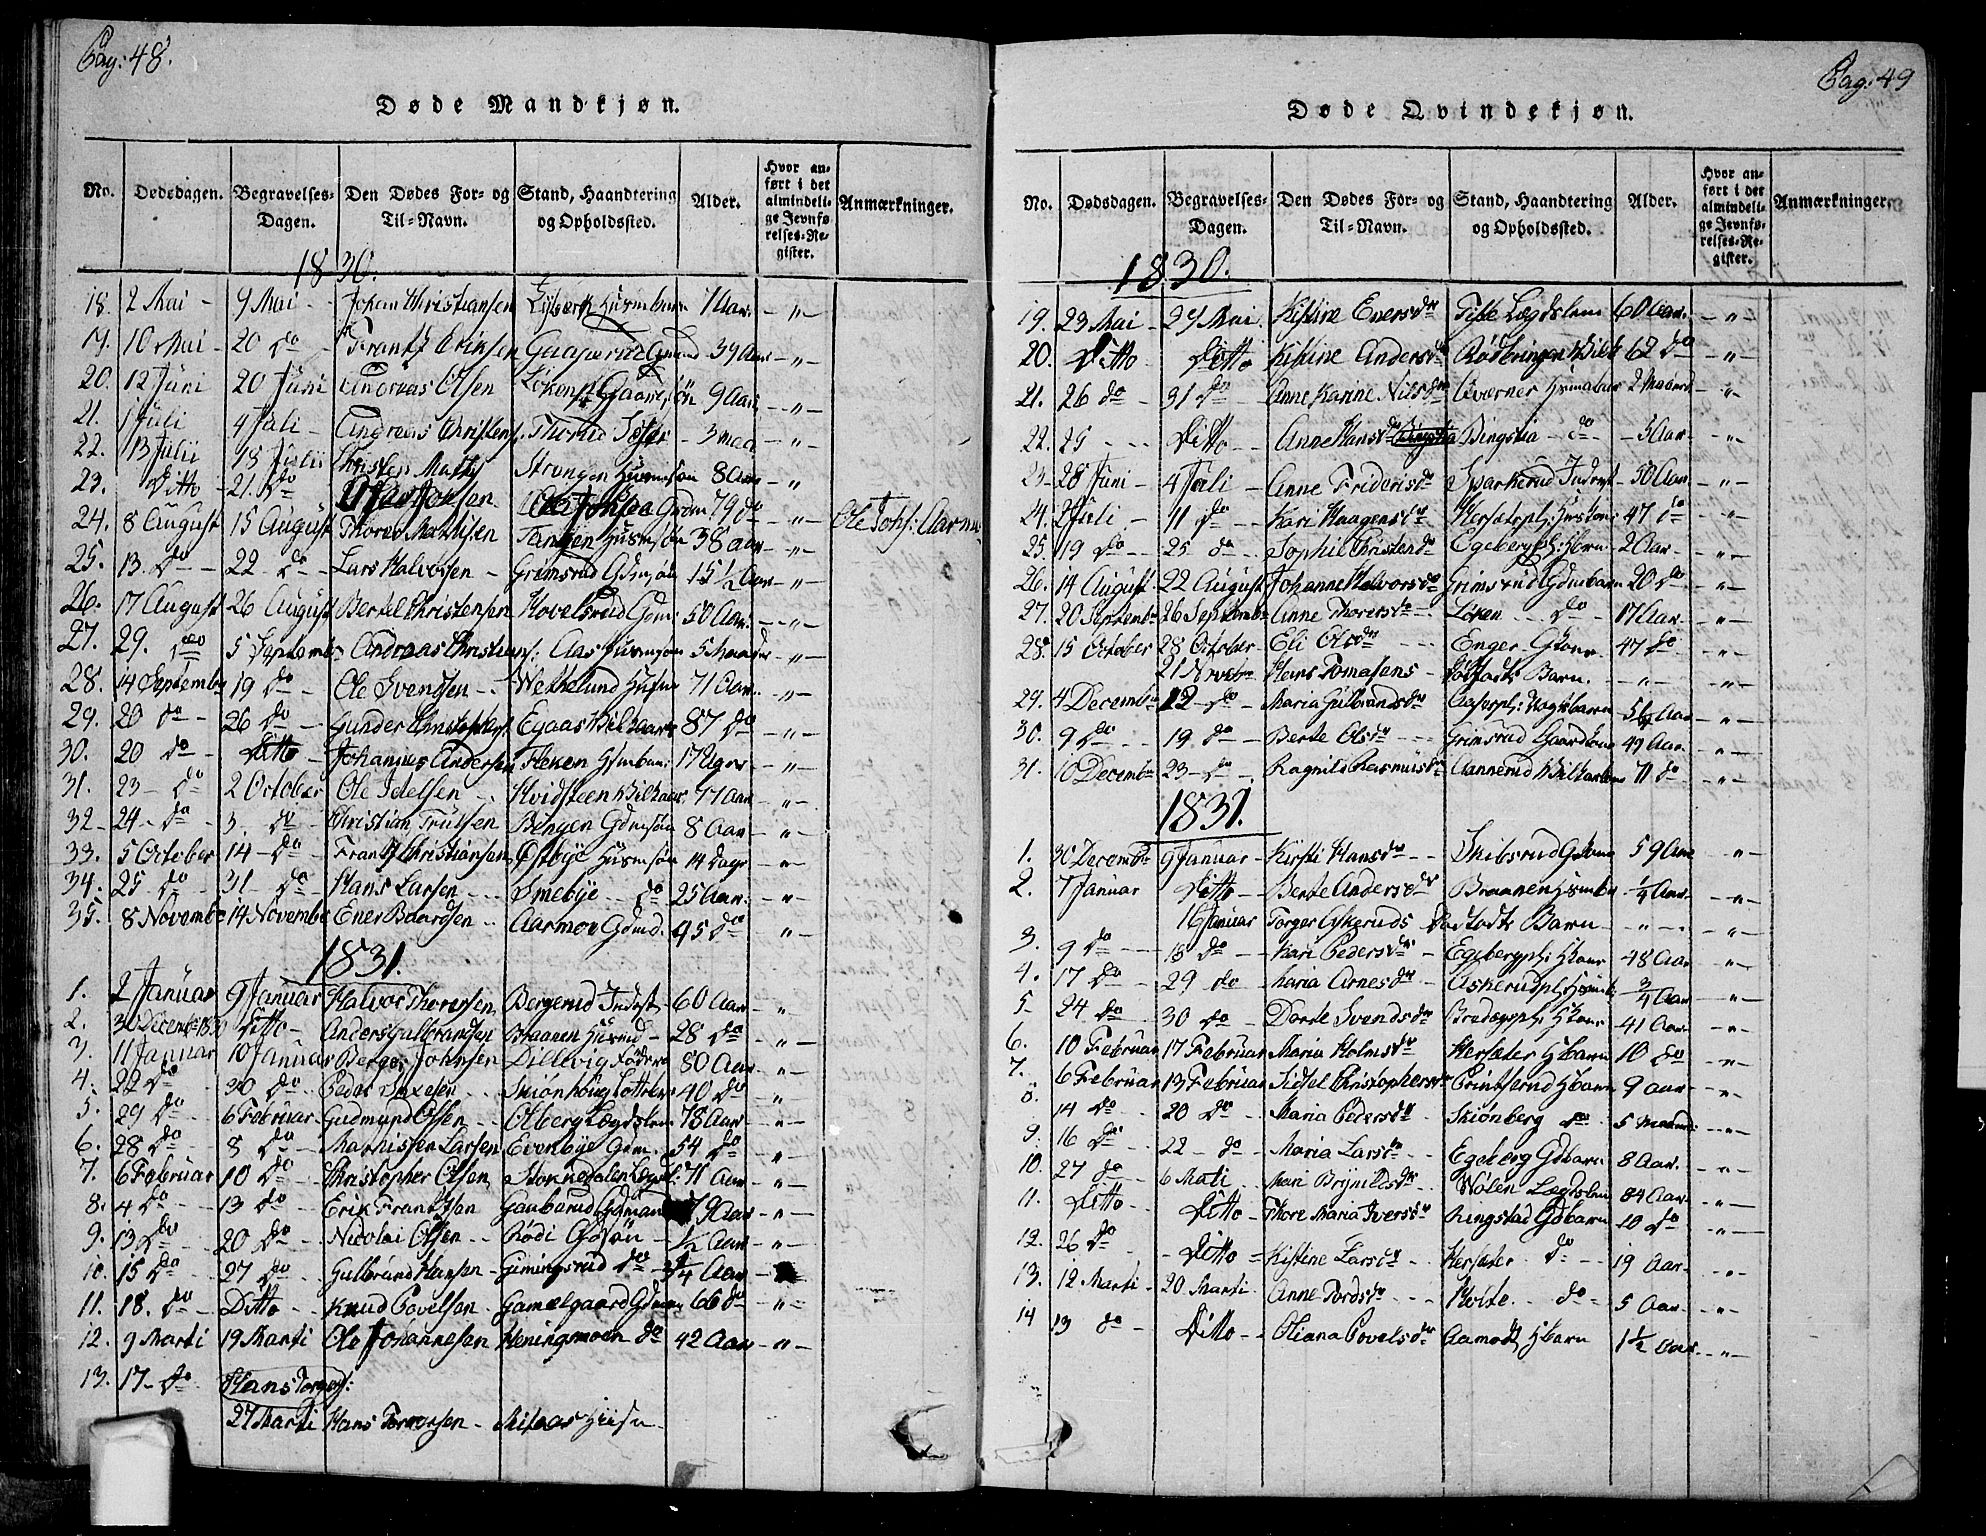 Pag: 48.
Døde Mandkjøn.
No. Dødsdagen. Begravelses-Dagen. Den Dødes For- og Til-Navn. Stand, Haandtering og Opholdssted. Alder. Hvor anført i det almindelige Jevnførelses-Register. Anmærkninger.
1830.
18. 2 Mai - 9 Mai - Johan Christiansen Husmbarn 1 Aar. - " -
19. 10 Mai - 20 do - Frantz Eriksen Gaaserud 39 Aar - " -
20. 12 Juni 20 Juni Andreas Olsen Løken Gaardsøn 9 Aar - " -
21. 1 Juli 4 Juli - Andreas Christens. Thorud - 3 maa - " -
22. 13 Julii 18 Julii Christen Maths Strangen Husmsøn 8 Aar - "
23. Ditto - 21 do Ole Johsen Gdm 79 do - " - Ole Johs: Aarnæs
24. 8 August 15 August Thores Mathisen Tangen Husmsøn 38 Aar - " -
25. 13. do - 22 - do - Lars Halvorsen - Grimsrud Gdmsøn 15 1/2 Aar - " -
26. 17 August 26 August Bertel Christensen Hovelsrud Gdm: 50 Aar. - " -
27. 29. do 5 Septemb. Andreas Christians: Aas Husmsøn 5 Maaneder - " -
28. 14 Septembr 19 do - Ole Svendsen - Wekkelund Husm 71 Aar. - " -
29. 20 do - 26 do - Gunder Christophers. Egaas Vilkaars 87 do - " -
30. 20 do - Ditto - Johannes Andersen Fleken Hsmbarn: 17 Uger - " -
31. 23 - do 2 October Ole Idelsen - Hvidsteen Vilkaar. 77 Aar - " -
32 - 24 - do - 3. do - Christian Trulsen Bengen Gdmsøn 8 Aar - " -
33. 5 October 14 - do - Frantz Christiansen Østbye Husmsøn 14 Dage - " -
34. 25 - do - 31 - do - Hans Larsen - Smebye - do 25 Aar. - " -
35. 8 Novembr 14 Novembr Ener Baardsen Aarmoe Gdmd. 45 do - " -
1831.
1. 2 Januar 9 Januar Halvor Thoresen Bergerud Inderst 60 Aar - "
2. 30 Decembr 1830 Ditto - Anders Gulbrandsen Braanen Husmd - 28 do - "
3. 11 Januar 10 Januar Berger Johnsen Dillevig 80 Aar - "
4. 22 do - 30 do - Peder Skiønhoug 40 do - "
5. 29 do - 6 Februar - Gudmund Olsen - Olberg Lægdslem 78 Aar - " -
6. 28 do - 8 do - Larsen Evenbye Gdm - 54 do - "
7. 6 Februar 10 do - Christopher Olsen Stokkedalen Lægdsl: 71 Aar - " -
8. 4 do - 13 do - Erik Frantzsen Gaaserud Gdman 79 Aar - " -
9. 13 do - 20 do - Nicolai Olsen - Rødi Gdsøn - 1/2 Aar - " -
10. 15 do - 27 do - Gulbrand Hansen - Gimingsrud do - 3/4 Aar -
11. 18. do - Ditto - Knud Povelsen - Gamelgaard Gdman 66 do - " -
12. 9 Marti 19 Marti Ole Johannesen Heningsmoen do 42 Aar - " -
13. 17 - do. Hans Torgers:
27 Marti Hans Torgersen - Husm -
Pag: 49
Døde Qvindekjøn.
No. Dødsdagen. Begravelses-Dagen. Den Dødes For- og Til-Navn. Stand, Haandtering og Opholdssted. Alder. Hvor anført i det almindelige Jevnførelses-Register. Anmærkninger.
1830.
19. 23 Mai - 29 Mai - Kistine Eversdr Lægdslem 60 Aar. - " -
20. Ditto Ditto Kistine Andersdr Rødbringen 62 do - " -
21. 26 do - 31 do - Anne Karine Nilsdr Husmbarn 2 Maaned - " -
22. 25 - Ditto - Anne Hansdr Bingstia Bingstia - do - 5 Aar - " -
23 - 28 Juni - 4 Juli - Anne Fridericsdr Sparkerud Inderst 50 Aar - " -
24. 2 Juli - 11 do - Kari Haagensdr Hersæterpl: Huskone 47 do - " -
25. 19 do - 25 do - Sophie Christendr Egebergpl: Hbarn - 2 Aar - " -
26. 14 August 22 August Johanne Halvorsdr Grimsrud Gdmbarn 20 do - " -
27. 20 Septembr 26 Septembr Anne Thoresdr - Løken - do - 17 Aar - " -
28. 15 October 28 October Eli Olsdr - Enger Gkone 47 do - " -
21 Novembr Hans Tomasens - Dødfødt Barn. - " - - " -
29. 4 Decembr 12 - do - Maria Gulbrandsdr Barn - " -
30. 9 do - 19 do - Berte Olsdr - Grimsrud Gaardkone 49 Aar - " -
31. 10 Decembr 23 - do - Ragnild Rasmusdr Aannerud Vilkarkone 71 do - " -
1831.
1. 30 Decembr 9 Januar - Kirsti Hansdr - Skibsrud Gkone 59 Aar - " -
2. 7 Januar Ditto - Berte Andersdr Braanen Hsmbr 1/4 Aar - " -
16 Januar Torger Askeruds Dødfødt Barn - " - - " -
3. 9 do - 18 do - Kari Pedersdr Egebergpl: Hkone 48 Aar - " -
4. 17 do - 29 do Maria Arnesdr - Askerudpl: Hsmb 3/4 Aar - " -
5 - 24 do - 30 do - Dorte Svendsdr Hkone 41 Aar - " -
6. 10 Februar 17 Februar Maria Holmsdr Hersæter Hbarn 10 do - " -
7. 6 Februar 13 Februar Sidsel Christophersdr Printserud Hbarn 9 Aar - " -
8. 14 do - 20 do - Maria Pedersdr - Skiønberg do - 5 Maaned: - " -
9. 16 do - 22 - do - Maria Larsdr - Egeberg Gdbarn 8 Aar. - " -
10. 27 do - 6 Marti - Mari Brynildsdr Wølen Lægdslem 84 Aar - " -
11. Ditto - Ditto - Thore Maria Iversdr Ringstad Gdbarn 10 do - " -
12. 26 do - Ditto - Kistine Larsdr Hersæter - do - 19 Aar - " -
13. 12 Marti - 20 Marti - Anne Tordsdr - Hvite - do - 5 Aar - " -
14 13 do - Ditto - Oliana Povelsdr Aamodt Hbarn 1 1/2 Aar - " -